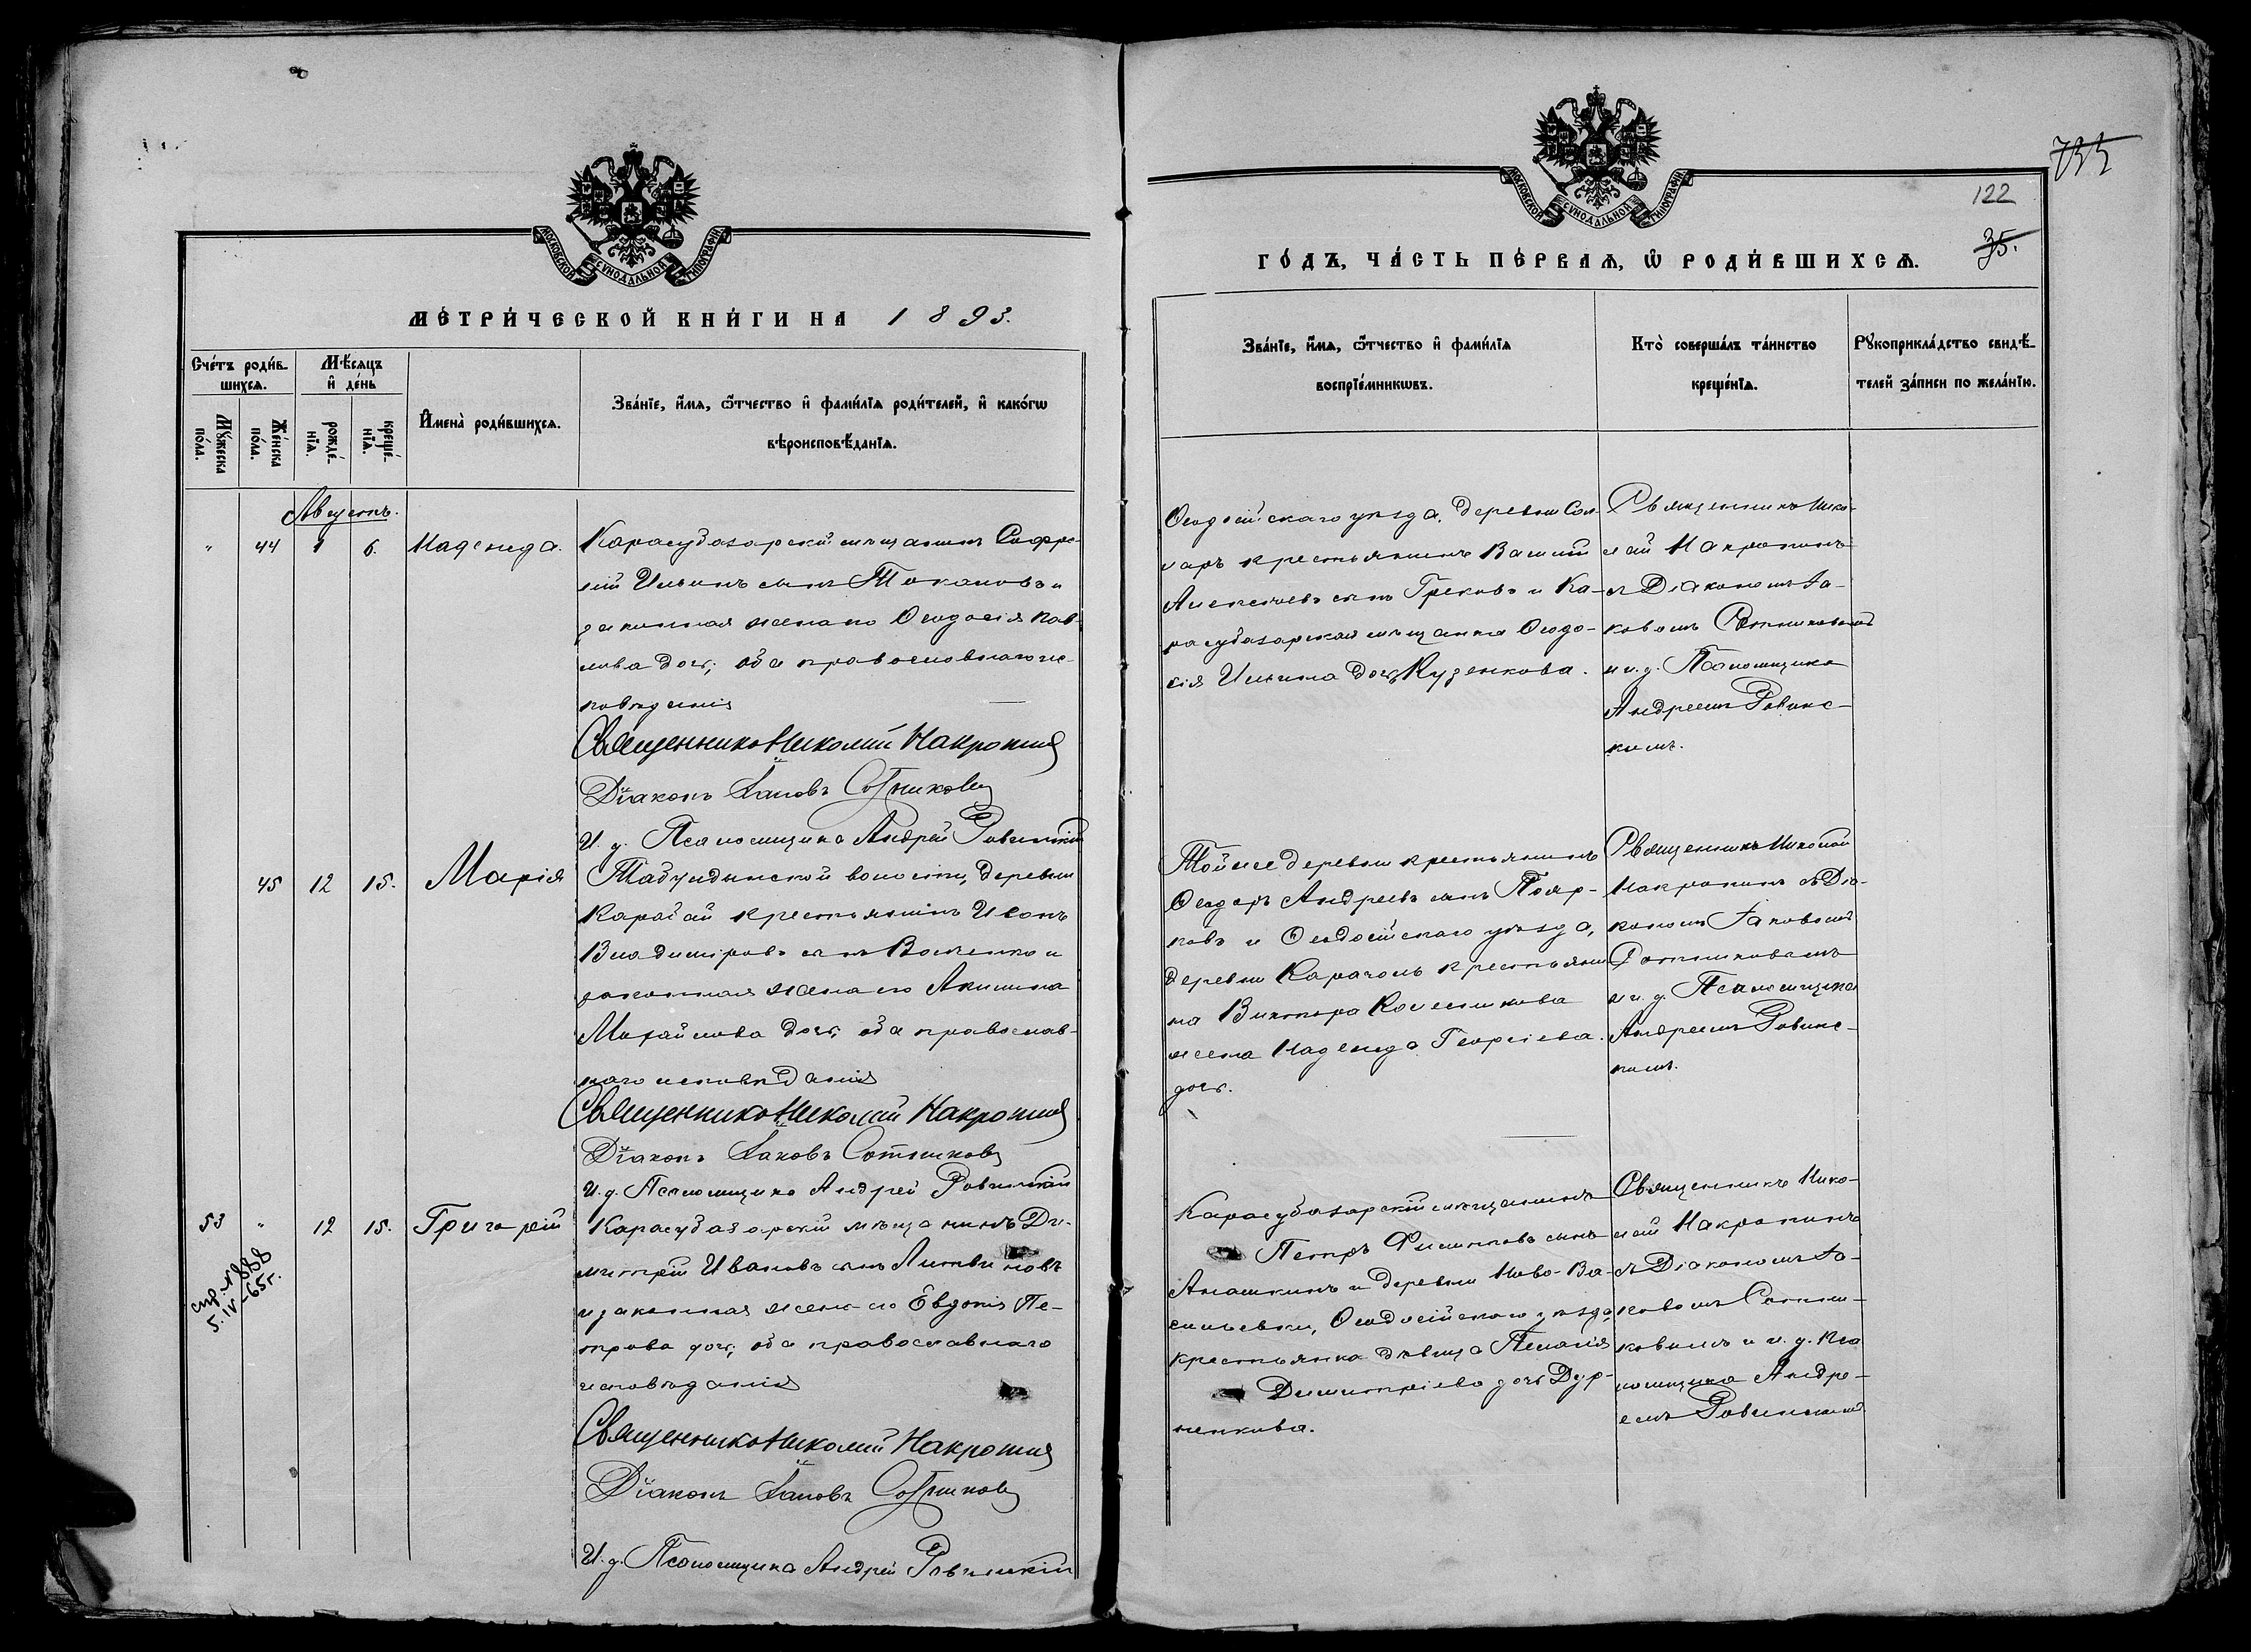 МОСКОВСКОЙ СѴНОДАЛЬНОЙ ТИПОГРАФІИ
МЕТРИ́ЧЕСКОЙ КНИ́ГИ НА 1893.
Сче́тъ роди́в-
шихсѧ.
Мѣ́сѧцъ
и҆ де́нь
Мꙋ́жеска
по́ла.
Же́нска
по́ла.
рожде́-
нїѧ.
креще́-
нїѧ.
И҆мена̀ роди́вшихсѧ.
Зва́нїе, и҆́мѧ, ѻ҆́тчество и҆ фами́лїѧ роди́телей, и҆ како́гѡ
вѣроисповѣ́данїѧ.
Августъ.
" 44 1 6. Надежда.
Карасубазарскій мѣщанинъ Софро-
ній Ильинъ сынъ Токаловъ и
законная жена его Ѳеодосія Пав-
лова дочь; оба православнаго ис-
повѣданія
Священникъ Николай Накропинъ
Діаконъ Іаковъ Сотниковъ
И. д. Псаломщика Андрей Ровинскій
45 12 15. Марія
Табулдинской волости, деревни
Карабай крестьянинъ Иванъ
Владиміровъ сынъ и
законная жена его Акилина
Михайлова дочь; оба православ-
наго исповѣданія
Священникъ Николай Накропинъ
Діаконъ Іаковъ Сотниковъ
И. д. Псаломщика Андрей Ровинскій
53 " 12 15. Григорій
спр. № 888
5.IV-65г.
Карасубазарскій мѣщанинъ Ди-
митрій Ивановъ сынъ Литвиновъ
и законная жена его Евдокія Пе-
трова дочь; оба православнаго
исповѣданія
Священникъ Николай Накропинъ
Діаконъ Іаковъ Сотниковъ
И. д. Псаломщика Андрей Ровинскій
735
122
35.
МОСКОВСКОЙ СѴНОДАЛЬНОЙ ТИПОГРАФІИ
ГО́ДЪ, ЧА́СТЬ ПЕ́РВАѦ, Ѡ҆ РОДИ́ВШИХСѦ.
Зва́нїе, и҆́мѧ, ѻ҆́тчество и҆ фами́лїѧ
воспрїе́мникѡвъ.
Кто̀ соверша́лъ та́инство
креще́нїѧ.
Рꙋкоприкла́дство свидѣ́-
телей за́писи по жела́нїю.
Ѳеодосійскаго уѣзда, деревни Сал-
ларъ крестьянинъ Василій
Алексѣевъ сынъ Грековъ и Ка-
расубазарская мѣщанка Ѳеодо-
сія Ильина дочь Кузенкова.
Священникъ Нико-
лай Накропинъ
съ Діакономъ Іа-
ковомъ Сотниковымъ
и и. д. Псаломщика
Андреемъ Ровинс-
кимъ.
Той же деревни крестьянинъ
Ѳеодоръ Андреевъ сынъ Пояр-
ковъ и Ѳеодосійскаго уѣзда,
деревни Карачоль крестьяни-
на Виктора Колесникова
жена Надежда Георгіева
дочь.
Священникъ Николай
Накропинъ съ Діа-
кономъ Іаковомъ
Сотниковымъ
и и. д. Псаломщика
Андреемъ Ровинс-
кимъ.
Карасубазарскій мѣщанинъ
Петръ Филипповъ сынъ
Анашкинъ и деревни Ново-Ва-
сильевки, Ѳеодосійскаго уѣзда,
крестьянка дѣвица Пелагія
Димитріева дочь Дур-
ненкова.
Священникъ Нико-
лай Накропинъ
съ Діакономъ Іа-
ковомъ Сотни-
ковымъ и и. д. Пса-
ломщика Андре-
емъ Ровинскимъ